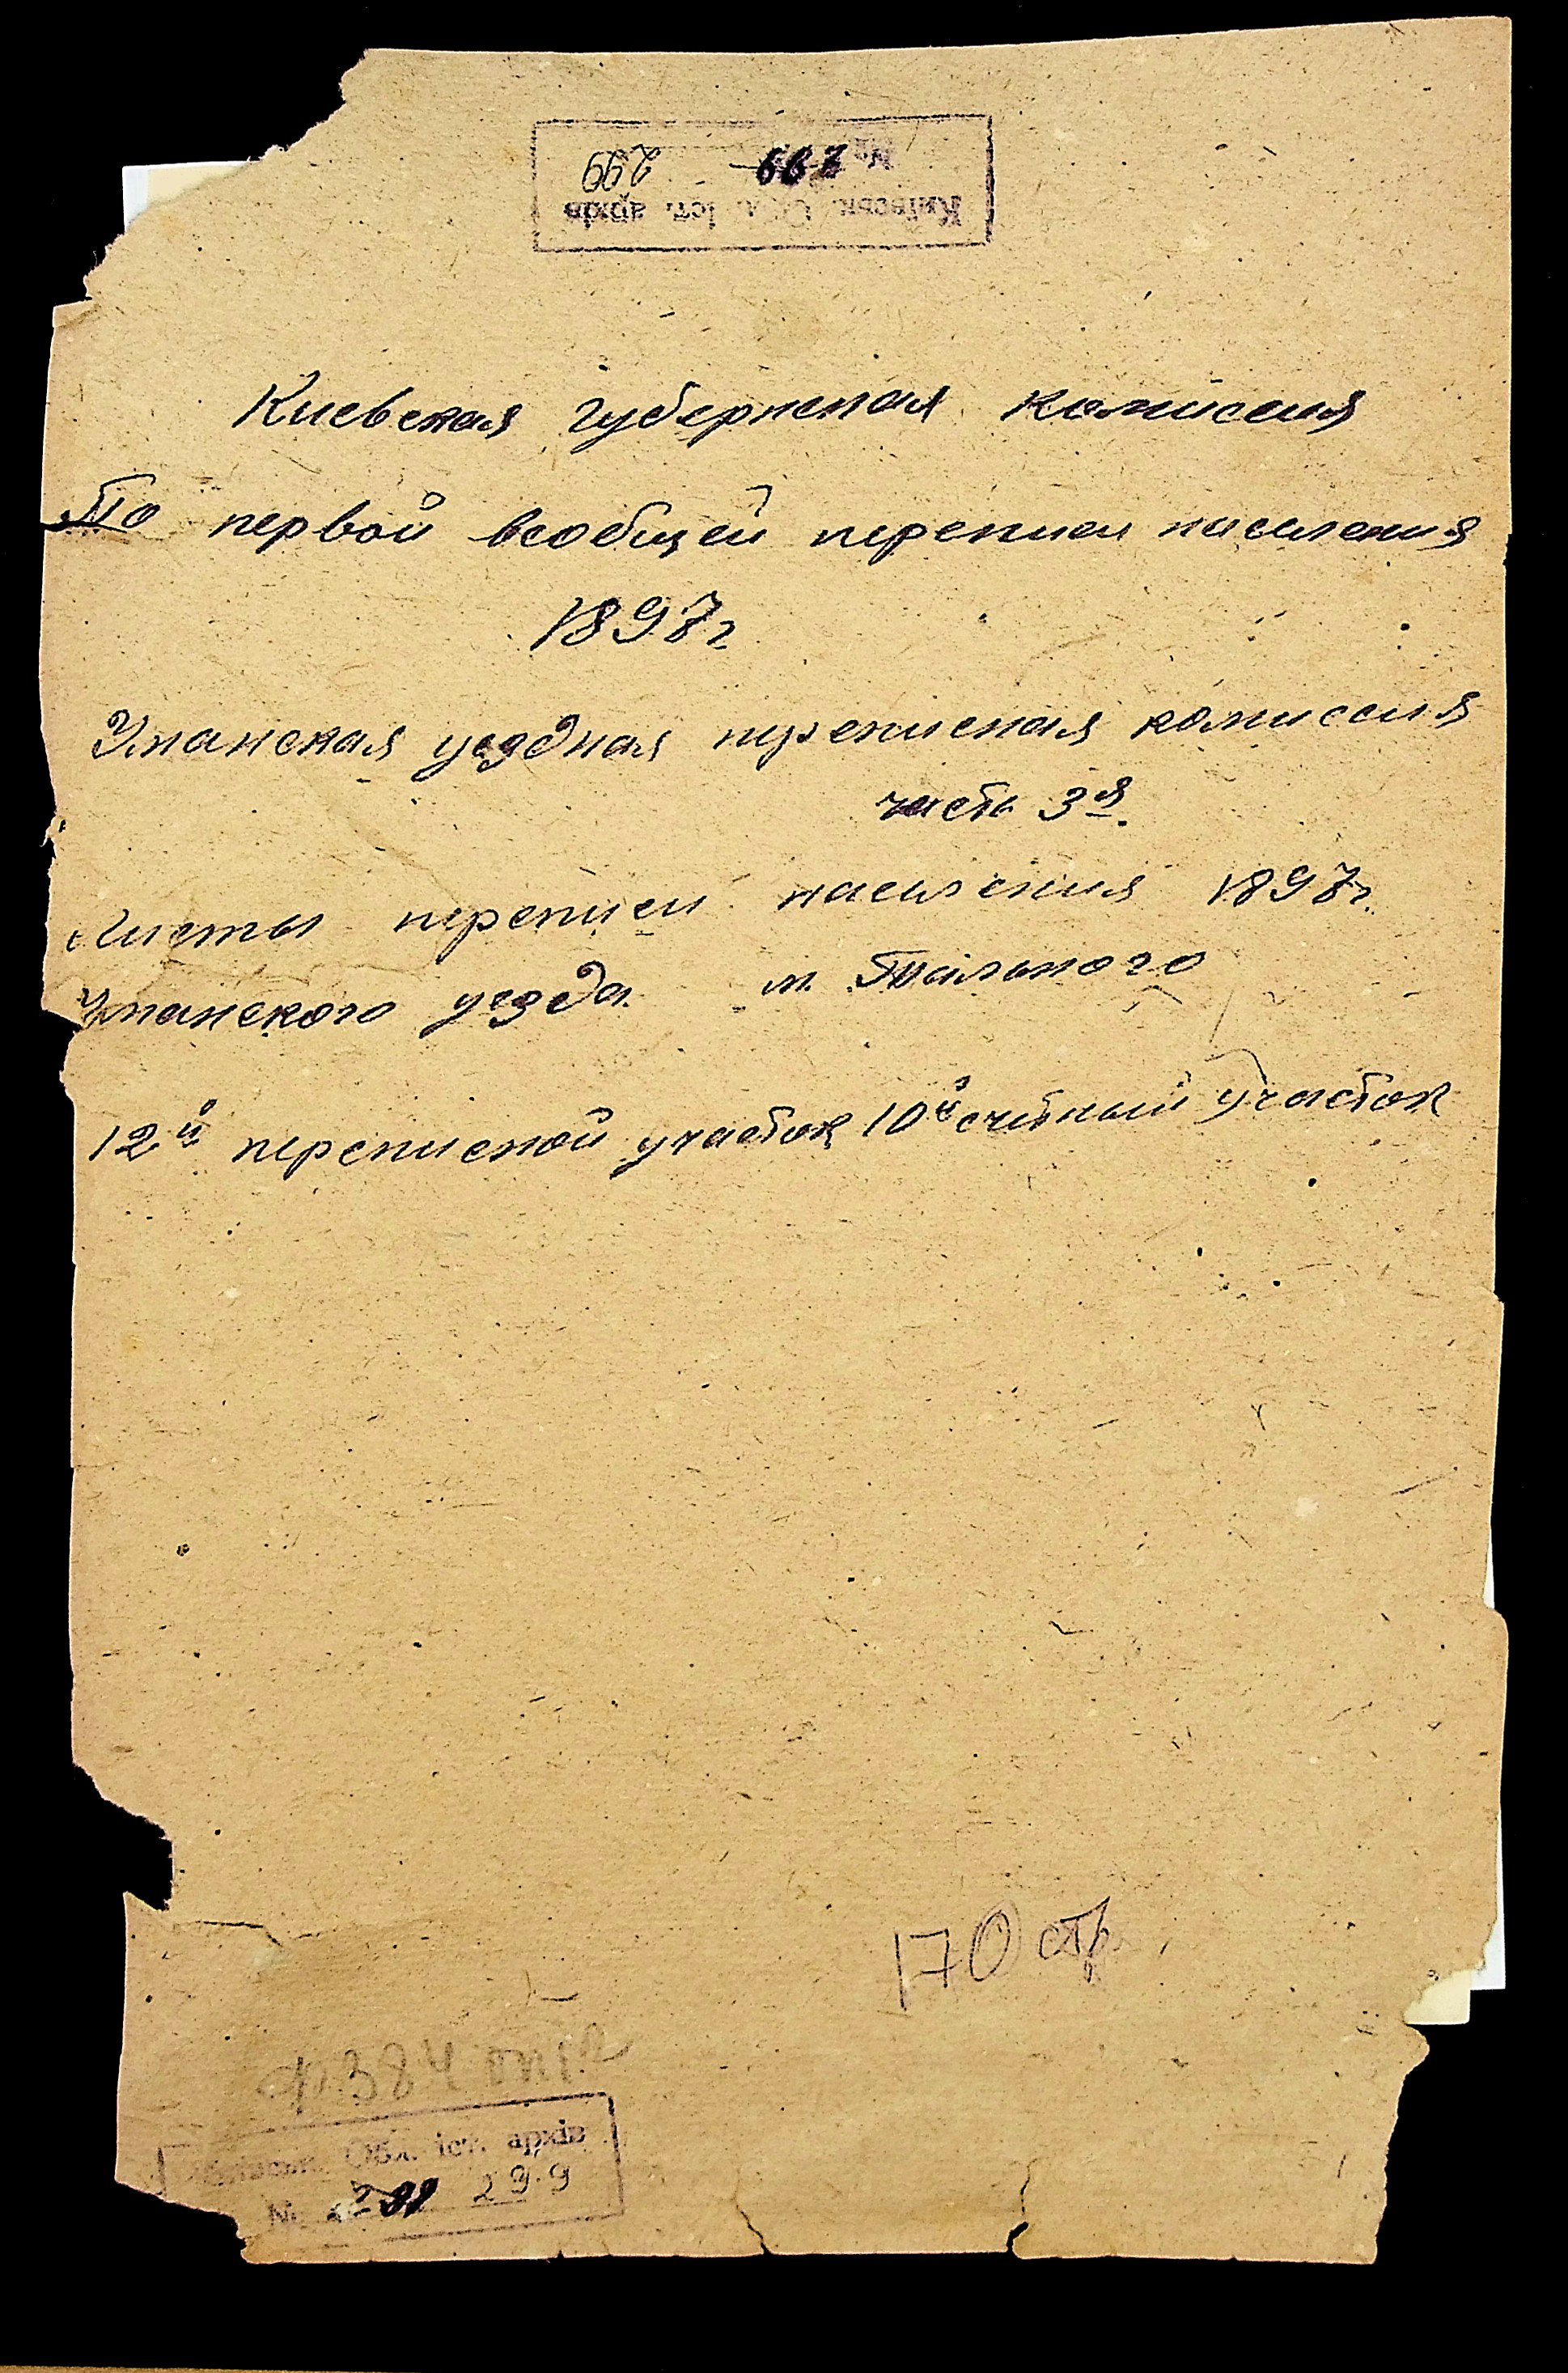 № 299 299
Київськ. Обл. іст. архів
Киевская губернская комиссия
По первой всеобщей переписи населения
1897г
Уманская уездная переписная комиссия
часть 3я.
Листы переписи населения 1897г.
Уманского уезда м. Тального
12й переписной участок 10й счётный участок
170 стр.
ф. 384 оп. 2
Київськ. Обл. іст. архів
№ 299 299